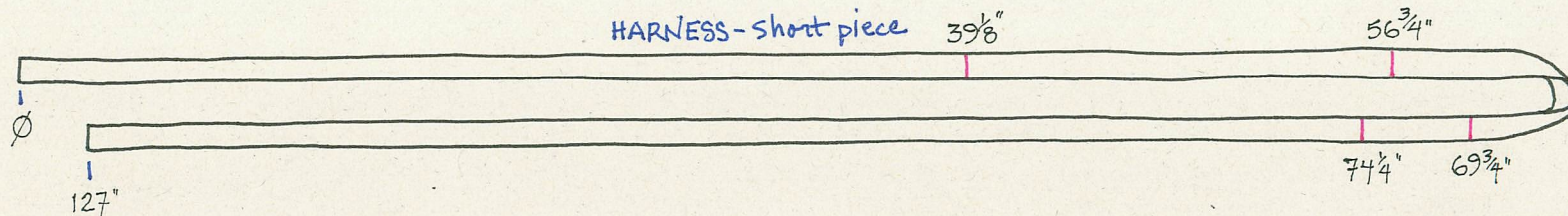 HARNESS - short piece
39 1/8"
56 3/4"
Ø
74 1/4"
69 3/4"
127"